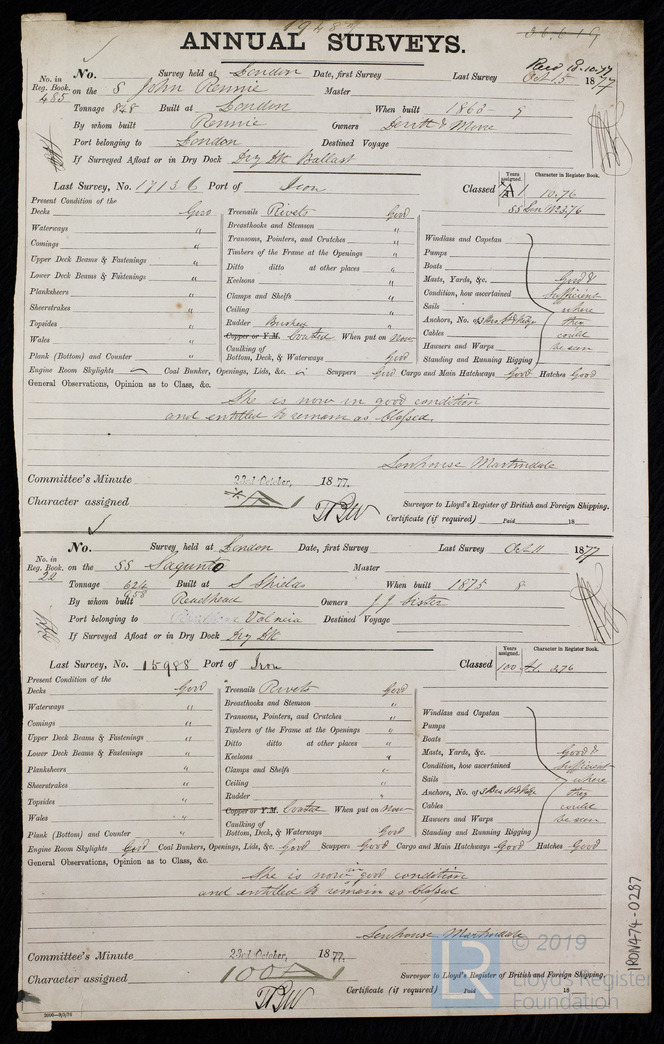 1948
36.619
ANNUAL SURVEYS.
No. in Reg. Book. 485
No. Survey held at London Date, first Survey Last Survey Oct. 15 1877
Recd 18.10.77
on the S John Rennie Master
Tonnage 848 Built at London When built 1863 - 9
By whom built Rennie Owners
Port belonging to London Destined Voyage
If Surveyed Afloat or in Dry Dock Dry Dk Ballast
Last Survey, No. 17136 Port of Iron
Years assigned. Character in Register Book.
Classed A1 10.76
SS Lon No 3.76
Present Condition of the
Decks Good Treenails Rivets Good
Waterways " Breasthooks and Stemson " Windlass and Capstan
Comings " Transoms, Pointers, and Crutches " Pumps
Upper Deck Beams & Fastenings " Timbers of the Frame at the Openings " Boats
Lower Deck Beams & Fastenings " Ditto ditto at other places " Masts, Yards, &c. Good &
Planksheers " Keelsons " Condition, how ascertained sufficient
Sheerstrakes " Clamps and Shelfs " Sails where
Topsides " Ceiling " Anchors, No. of they
Wales " Rudder " Cables could
Copper or Y.M. Coated When put on Now Hawsers and Warps be seen
Plank (Bottom) and Counter " Caulking of Bottom, Deck, & Waterways Good Standing and Running Rigging
Engine Room Skylights Coal Bunker, Openings, Lids, &c. " Scuppers Good Cargo and Main Hatchways Good Hatches Good
General Observations, Opinion as to Class, &c.
She is now in good condition
and entitled to remain as Classed.
Senhouse Martindale
Committee's Minute 23rd October, 1877.
Character assigned A1
Surveyor to Lloyd's Register of British and Foreign Shipping.
Certificate (if required) Paid 18
No. in Reg. Book. 22
No. Survey held at London Date, first Survey Last Survey Oct 11 1877
on the SS Sagunto Master
Tonnage 624 958 Built at S Shields When built 1875 8
By whom built Readhead Owners J J Sister
Port belonging to Valncia Destined Voyage
If Surveyed Afloat or in Dry Dock Dry Dk
Last Survey, No. 15988 Port of Iron
Years assigned. Character in Register Book.
Classed 100 A1. 3.76
Present Condition of the
Decks Good Treenails Rivets Good
Waterways " Breasthooks and Stemson " Windlass and Capstan
Comings " Transoms, Pointers, and Crutches " Pumps
Upper Deck Beams & Fastenings " Timbers of the Frame at the Openings " Boats
Lower Deck Beams & Fastenings " Ditto ditto at other places " Masts, Yards, &c. Good &
Planksheers " Keelsons " Condition, how ascertained sufficient
Sheerstrakes " Clamps and Shelfs " Sails where
Topsides " Ceiling " Anchors, No. of they
Wales " Rudder " Cables could
Copper or Y.M. Coated When put on Now Hawsers and Warps be seen
Plank (Bottom) and Counter " Caulking of Bottom, Deck, & Waterways Good Standing and Running Rigging
Engine Room Skylights Good Coal Bunkers, Openings, Lids, &c. Good Scuppers Good Cargo and Main Hatchways Good Hatches Good
General Observations, Opinion as to Class, &c.
She is now in good condition
and entitled to remain as Classed
Senhouse Martindale
Committee's Minute 23rd October, 1877.
Character assigned 100 A1
Surveyor to Lloyd's Register of British and Foreign Shipping.
Certificate (if required) Paid 18
IRON474-0287
LR
© 2019
Lloyd's Register
Foundation